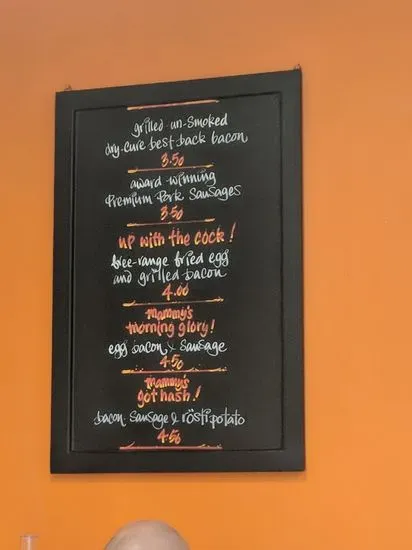 grilled un-smoked
dry-cure best back bacon
3.50
award-winning
Premium Pork Sausages
3.50
up with the cock!
free-range fried egg
and grilled bacon
4.00
mammy's
morning glory!
egg bacon & sausage
4.50
mammy's
got hash!
bacon sausage & rösti potato
4.50